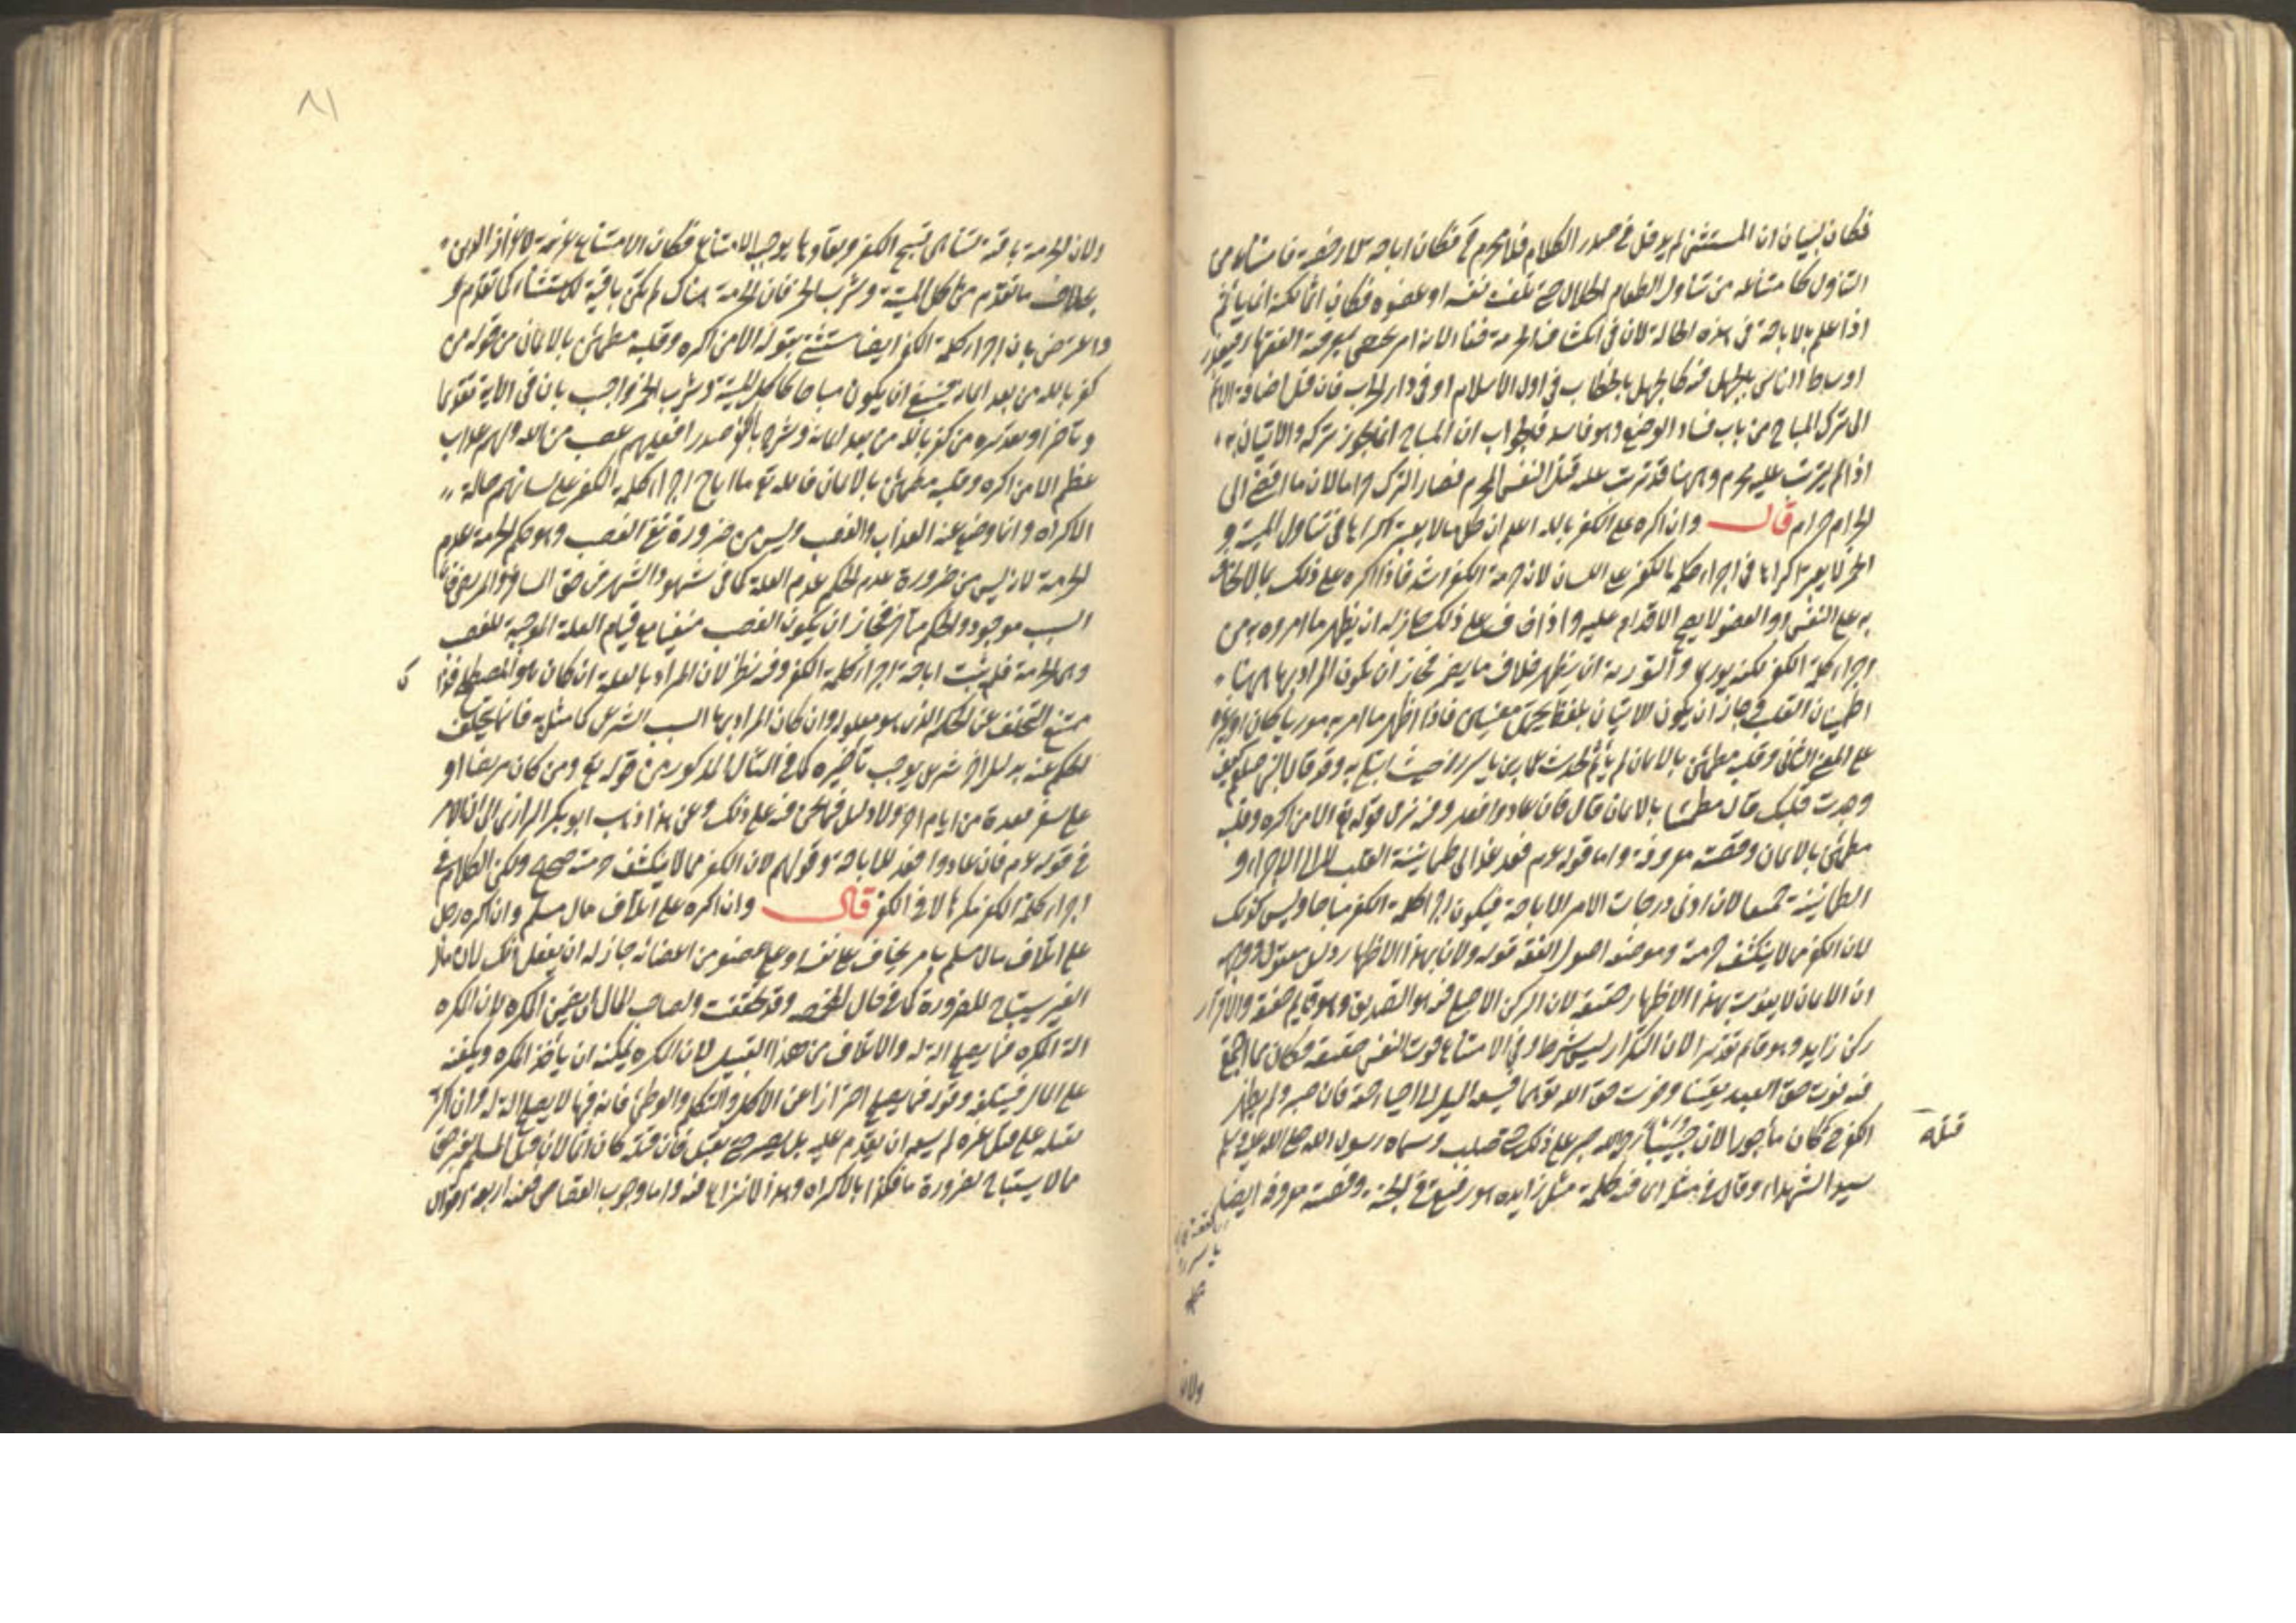 فكان لبيان ان المستثنى لم يدخل في صدر الكلام فلا محرم ثم فكان اباحة لا رخصة فامتناعه من
التناول كامتناعه من تناول الطعام الحلال حتى تلفت نفسه او عضوه فكان اثما لكنه انما يأثم
اذا علم بالاباحة في هذه الحالة لان في انكشاف الحرمة خفاء لانه امر يختص بمعرفة الفقهاء فيعذر
اوساط الناس بالجهل فيه كالجهل بالخطاب في اول الاسلام او في دار الحرب فان قيل اضافة الاثم
الى ترك المباح من باب فساد الوضع وهو فاسد فالجواب ان المباح انما يجوز تركه والاتيان به
اذا لم يترتب عليه محرم وههنا قد ترتب عليه قتل النفس المحرم فصار الترك حراما لان ما افضى الى
الحرام حرام قال وان اكره على الكفر بالله اعلم ان كل ما لا يعتبر اكراها في تناول الميتة و
الخمر لا يعتبر اكراها في اجراء كلمة الكفر على اللسان لان حرمة الكفر اشد فاذا اكره على ذلك بما لا يخاف
به على النفس او العضو لا يصح الاقدام عليه واذا خاف على ذلك جاز له ان يظهر ما امروه به من
اجراء كلمة الكفر لكنه يوري والتورية ان يظهر خلاف ما يضمر فجاز ان يكون المراد بها ههنا
اطمينان القلب وجاز ان يكون الاتيان بلفظ يحتمل معنيين فاذا اظهر ما امر به موريا كان او
على المعنى الثاني وقلبه مطمئن بالايمان لم يأثم لحديث عمار بن ياسر رض حيث ابتلي به وقد قال النبي صلعم كيف
وجدت قلبك قال مطمئنا بالايمان قال فان عادوا فعد وفيه نزل قوله تع الا من اكره وقلبه
مطمئن بالايمان وقصته معروفة واما قوله عم فعد فعد الى طمانينة القلب لا الى الاجراء و
الطمانينة جميعا لان ادنى درجات الامر الاباحة فيكون اجراء كلمة الكفر مباحا وليس كذلك
لان الكفر مما لا ينكشف حرمته وموضعه اصول الفقه قوله ولان بهذا الاظهار دليل معقول ووجهه
ان الايمان لا يفوت بهذا الاظهار حقيقة لان الركن الاصلي فيه هو التصديق وهو قايم حقيقة والاقرار
ركن زايد وهو قايم تقديرا لان التكرار ليس بشرط وفي الامتناع فوت النفس حقيقة فكان مما اجتمع
فيه فوت حق العبد يقينا وفوت حق الله توهما فيسعه الميل الى احياء حقه فان صبر ولم يظهر
الكفر حتى كان مأجورا لان خبيبا رض صبر على ذلك حتى صلب وسماه رسول الله صلى الله عليه وسلم
سيد الشهداء وقال في مثله اي فيه كلمة مثل زايدة هو رفيقي في الجنة وقصته معروفة ايضا
قتله
ولان
٨١
ولان الحرمة باقية لتناهي قبح الكفر وبقاؤها يوجب الامتناع فكان الامتناع عزيمة لاعزاز الدين
بخلاف ما تقدم من اكل الميتة وشرب الخمر فان الحرمة هناك لم تكن باقية للاستثناء كما تقدم
واعترض بان اجراء كلمة الكفر ايضا مستثنى بقوله الا من اكره وقلبه مطمئن بالايمان من قوله من
كفر بالله من بعد ايمانه فينبغي ان يكون مباحا كاكل الميتة وشرب الخمر واجيب بان في الاية تقديما
وتأخيرا وتقديره من كفر بالله من بعد ايمانه وشرح بالكفر صدرا فعليهم غضب من الله ولهم عذاب
عظيم الا من اكره وقلبه مطمئن بالايمان فالله تع ما اباح اجراء كلمة الكفر على لسانهم حالة
الاكراه وانما وضع عنه العذاب والغضب وليس من ضرورة نفي الغضب وهو حكم الحرمة عدم
الحرمة لانه ليس من ضرورة عدم الحكم عدم العلة كما في شهود الشهر في حق المسافر والمريض فان
السبب موجود والحكم متأخر فجاز ان يكون الغضب منفيا مع قيام العلة الموجبة للغضب
وهي الحرمة فلم يثبت اباحة اجراء كلمة الكفر وفيه نظر لان المراد بالعلة ان كان هو المصطلح فذا
ممتنع التخلف عن الحكم الذي هو معلوله وان كان المراد بها السبب الشرعي كما مثل به فانما يتخلف
الحكم عنه بدليل اخر شرعي يوجب تأخيره كما في المثال المذكور من قوله تع ومن كان مريضا او
على سفر فعدة من ايام اخر ولا دليل فيما نحن فيه على ذلك وعن هذا ذهب ابو بكر الرازي الى ان الامر
في قوله عم فان عادوا فعد للاباحة وقولهم لان الكفر مما لا ينكشف حرمته صحيح ولكن الكلام في
اجراء كلمة الكفر مكرها لا في الكفر قال وان اكره على اتلاف مال مسلم وان اكره رجل
على اتلاف مال مسلم بامر يخاف على نفسه او على عضو من اعضائه جاز له ان يفعل ذلك لان مال
الغير يستباح للضرورة كما في حال المخمصة وقد تحققت ولصاحب المال ان يضمن المكره لان المكره
الة المكره فيما يصلح الة له والاتلاف من هذا القبيل لان المكره يمكنه ان يأخذ المكره ويلقيه
على المال فيتلفه وقوله فيما يصلح احترازا عن الاكل والتكلم والوطئ فانه فيها لا يصلح الة له وان اكره
بقتله على قتل غيره لم يسعه ان يقدم عليه بل يصبر حتى يقتل فان قتله كان اثما لان قتل المسلم بغير حق
مما لا يستباح لضرورة ما فكذا بالاكراه وهذا لا نزاع فيه واما وجوب القصاص ففيه اربعة اقوال